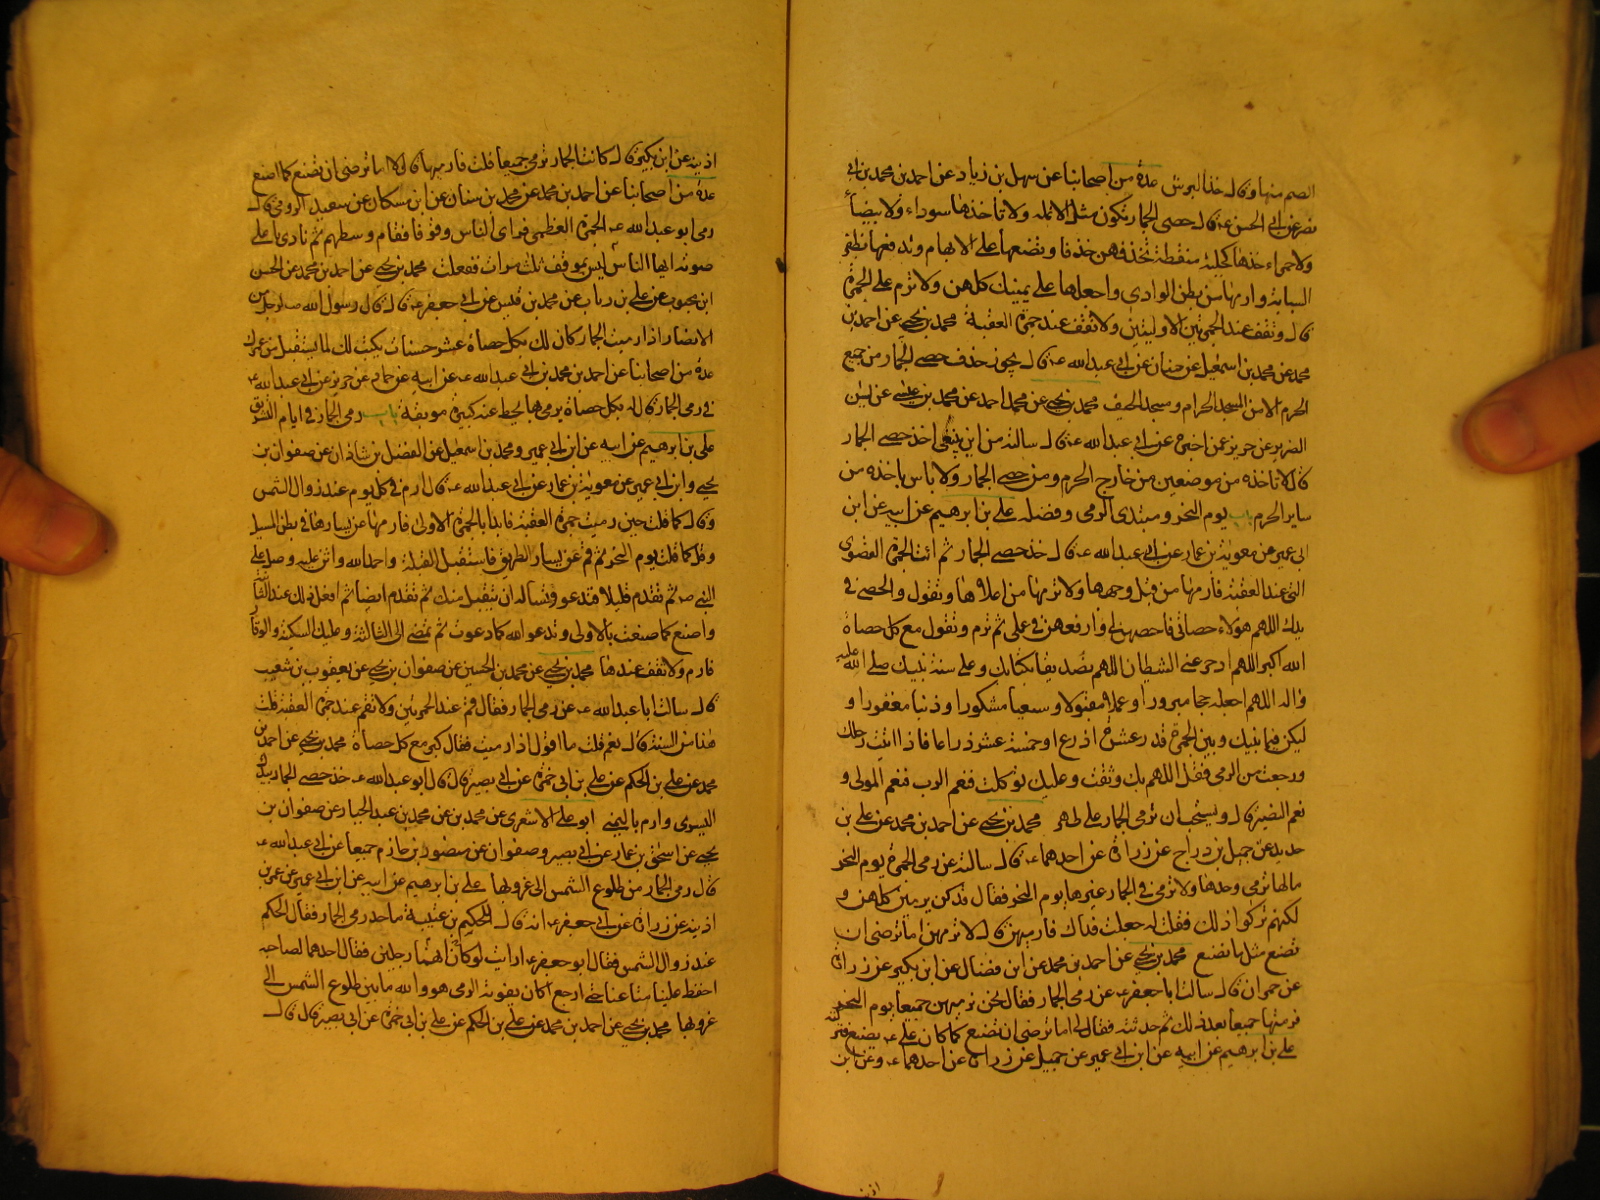 الصم منها وقال خذ البرش عدة من اصحابنا عن سهل بن زياد عن احمد بن محمد بن ابي
نصر عن ابي الحسن ع قال حصى الجمار تكون مثل الانملة ولا تأخذها سوداء ولا بيضاء
ولا حمراء خذها كحلية منقطة تخذفهن خذفا وتضعها على الابهام وتدفعها بظفر
السبابة وارمها من بطن الوادي واجعلها على يمينك كلهن ولا ترم على الجمرة
قال وتقف عند الجمرتين الاوليتين ولا تقف عند جمرة العقبة محمد بن يحيى عن احمد بن
محمد عن محمد بن اسمعيل عن حنان عن ابي عبد الله ع قال يجوز خذف حصى الجمار من جميع
الحرم الا من المسجد الحرام ومسجد الخيف محمد بن يحيى عن محمد احمد عن محمد بن عيسى عن يس
الضرير عن حريز عمن اخبره عن ابي عبد الله ع قال سالته من اين ينبغي اخذ حصى الجمار
قال لا تاخذه من موضعين من خارج الحرم ومن حصى الجمار ولا باس باخذه من
ساير الحرم باب يوم النحر ومبتدى الرمي وفضله علي بن ابرهيم عن ابيه عن ابن
ابي عمير عن معوية بن عمار عن ابي عبد الله ع قال خذ حصى الجمار ثم ائت الجمرة القصوى
التي عند العقبة فارمها من قبل وجهها ولا ترمها من اعلاها وتقول والحصى في
يدك اللهم هؤلاء حصياتي فاحصهن لي وارفعهن في عملي ثم ترم وتقول مع كل حصاة
الله اكبر اللهم ادحر عني الشيطان اللهم تصديقا بكتابك وعلى سنة نبيك صلى الله عليه
واله اللهم اجعله حجا مبرورا وعملا مقبولا وسعيا مشكورا وذنبا مغفورا و
ليكن فيما بينك وبين الجمرة قدر عشرة اذرع او خمسة عشر ذراعا فاذا اتيت رحلك
ورجعت من الرمي فقل اللهم بك وثقت وعليك توكلت فنعم الرب فنعم المولى و
نعم النصير قال ويستحب ان ترمى الجمار على طهر محمد بن يحيى عن احمد بن محمد عن علي بن
حديد عن جميل بن دراج عن زرارة عن احدهما ع قال سالته عن رمي الجمرة يوم النحر
مالها ترمى وحدها ولا ترمى في الجمار غيرها يوم النحر فقال قد كن يرمين كلهن و
لكنهم تركوا ذلك فقلت له جعلت فداك فارميهن قال لا ترمهن اما ترضى ان
تصنع مثل ما نصنع محمد بن يحيى عن احمد بن محمد عن ابن فضال عن ابن بكير عن زرارة
عن حمران قال سالت ابا جعفر ع عن رمي الجمار فقال كن ترمين جميعا يوم النحر
فرميتها جميعا بعد ذلك ثم حدثته فقال لي اما ترضى ان تصنع كما كان علي ع يصنع فتركته
علي بن ابرهيم عن ابيه عن ابن ابي عمير عن جميل عن زرارة عن احدهما ع وعن ابن
اذينة عن ابن بكير قال كانت الجمار ترمى جميعا قلت فارميها قال لا اما ترضى ان تصنع كما اصنع
عدة من اصحابنا عن احمد بن محمد عن محمد بن سنان عن ابن مسكان عن سعيد الرومي قال
رمى ابو عبد الله ع الجمرة العظمى فراى الناس وقوفا فقام وسطهم ثم نادى باعلى
صوته ايها الناس ليس بموقف ثلث مرات ففعلت محمد بن يحيى عن احمد بن محمد عن الحسن
ابن محبوب عن علي بن رباب عن محمد بن قيس عن ابي جعفر ع قال قال رسول الله ص لرجل من
الانصار اذا رميت الجمار كان لك بكل حصاة عشر حسنات يكتب لك لما يستقبل من عمرك
عدة من اصحابنا عن احمد بن محمد بن ابي عبد الله ع عن ابيه عن حماد عن حريز عن ابي عبد الله ع
في رمي الجمار قال له بكل حصاة يرمي بها يحط عنه كبيرة موبقة باب رمي الجمار في ايام التشريق
علي بن ابرهيم عن ابيه عن ابن ابي عمير ومحمد بن اسمعيل عن الفضل بن شاذان عن صفوان بن
يحيى وابن ابي عمير عن معوية بن عمار عن ابي عبد الله ع قال ارم في كل يوم عند زوال الشمس
وقال كما قلت حين رميت جمرة العقبة فابدا بالجمرة الاولى فارمها عن يسارها في بطن المسيل
وقل كما قلت يوم النحر ثم قم عن يسار الطريق فاستقبل القبلة واحمد الله واثن عليه وصل على
النبي ص ثم تقدم قليلا فتدعو وتساله ان يتقبل منك ثم تقدم ايضا ثم افعل ذلك عند الثانية
واصنع كما صنعت بالاولى وتدعو الله كما دعوت ثم تمضي الى الثالثة وعليك السكينة والوقار
فارم ولا تقف عندها محمد بن يحيى عن محمد بن الحسين عن صفوان بن يحيى عن يعقوب بن شعيب
قال سالت ابا عبد الله ع عن رمي الجمار فقال قم عند الجمرتين ولا تقم عند جمرة العقبة قلت
هذا من السنة قال نعم قلت ما اقول اذا رميت فقال كبر مع كل حصاة محمد بن يحيى عن احمد بن
محمد عن علي بن الحكم عن علي بن ابي حمزة عن ابي بصير قال قال ابو عبد الله ع خذ حصى الجمار بيدك
اليسرى وارم باليمنى ابو علي الاشعري عن محمد بن عن محمد بن عبد الجبار عن صفوان بن
يحيى عن اسحق بن عمار عن ابي بصير وصفوان عن منصور بن حازم جميعا عن ابي عبد الله ع
قال رمي الجمار من طلوع الشمس الى غروبها علي بن ابرهيم عن ابيه عن ابن ابي عمير عن عمر بن
اذينة عن زرارة عن ابي جعفر ع انه قال للحكم بن عتيبة ما حد رمي الجمار فقال الحكم
عند زوال الشمس فقال ابو جعفر ع ارايت لو كانا انهما رجلين فقال احدهما لصاحبه
احفظ علينا متاعنا حتى ارجع اكان يفوته الرمي هو والله ما بين طلوع الشمس الى
غروبها محمد بن يحيى عن احمد بن محمد عن علي بن الحكم عن علي بن ابي حمزة عن ابي بصير قال قال